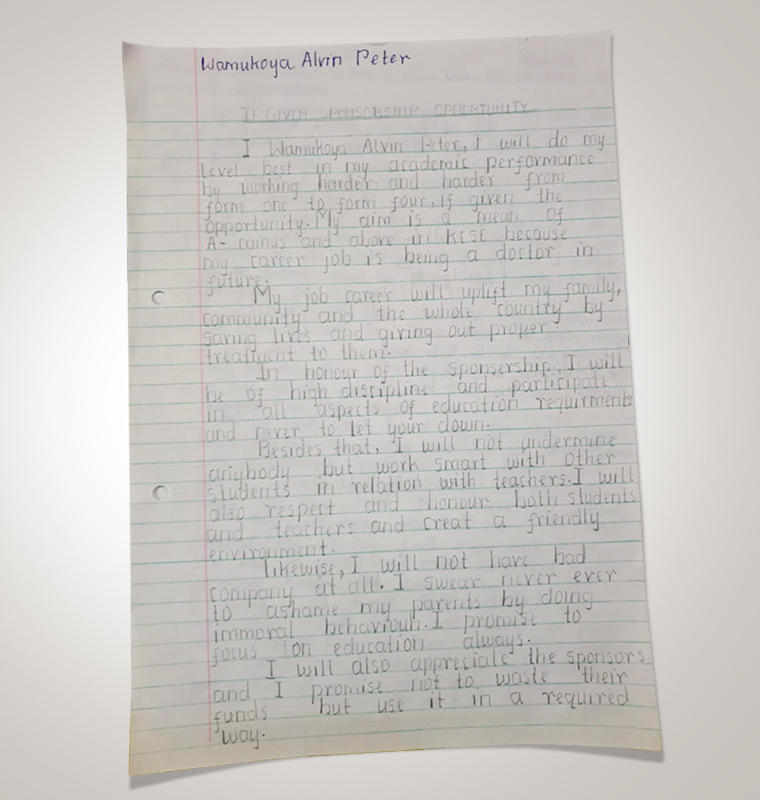 Wamukoya Alvin Peter
IF GIVEN SPONSORSHIP OPPORTUNITY
I Wamukoya Alvin Peter, I will do my
level best in my academic performance
by working harder and harder from
form one to form four, If given the
opportunity. My aim is a mean of
A- minus and above in KCSE because
my career job is being a doctor in
future.
My job career will uplift my family,
community and the whole country by
saving lives and giving out proper
treatment to them.
In honour of the sponsership, I will
be of high discipline and participate
in all aspects of education requirments
and never to let your down.
Besides that, I will not undermine
anybody but work smart with other
students in relation with teachers. I will
also respect and honour both students
and teachers and creat a friendly
environment.
likewise, I will not have bad
company at all. I swear never ever
to ashame my parents by doing
immoral behaviouh. I promise to
focus on education always.
I will also appreciate the sponsors
and I promise not to waste their
funds but use it in a required
way.